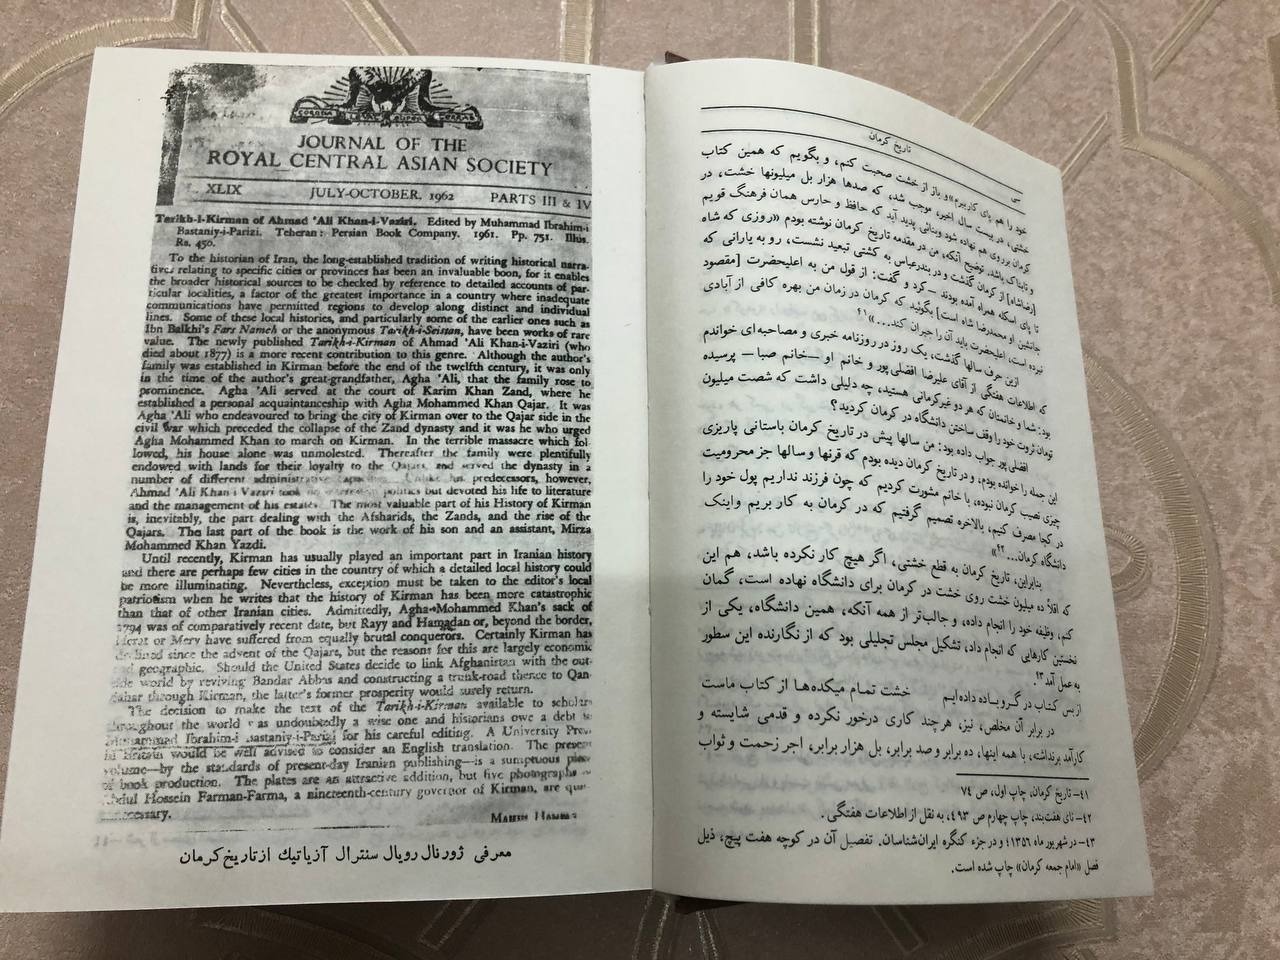 JOURNAL OF THE
ROYAL CENTRAL ASIAN SOCIETY
XLIX JULY-OCTOBER, 1962 PARTS III & IV
Tarikh-i-Kirman of Ahmad 'Ali Khan-i-Vaziri. Edited by Muhammad Ibrahim-i
Bastaniy-i-Parizi. Teheran: Persian Book Company. 1961. Pp. 751. Illus.
Rs. 450.
To the historian of Iran, the long-established tradition of writing historical narra-
tives relating to specific cities or provinces has been an invaluable boon, for it enables
the broader historical sources to be checked by reference to detailed accounts of par-
ticular localities, a factor of the greatest importance in a country where inadequate
communications have permitted regions to develop along distinct and individual
lines. Some of these local histories, and particularly some of the earlier ones such as
Ibn Balkhi's Fars Nameh or the anonymous Tarikh-i-Seistan, have been works of rare
value. The newly published Tarikh-i-Kirman of Ahmad 'Ali Khan-i-Vaziri (who
died about 1877) is a more recent contribution to this genre. Although the author's
family was established in Kirman before the end of the twelfth century, it was only
in the time of the author's great-grandfather, Agha 'Ali, that the family rose to
prominence. Agha 'Ali served at the court of Karim Khan Zand, where he
established a personal acquaintanceship with Agha Mohammed Khan Qajar. It was
Agha 'Ali who endeavoured to bring the city of Kirman over to the Qajar side in the
civil war which preceded the collapse of the Zand dynasty and it was he who urged
Agha Mohammed Khan to march on Kirman. In the terrible massacre which fol-
lowed, his house alone was unmolested. Thereafter the family were plentifully
endowed with lands for their loyalty to the Qajars, and served the dynasty in a
number of different administrative capacities. Unlike his predecessors, however,
Ahmad 'Ali Khan-i Vaziri took no interest in politics but devoted his life to literature
and the management of his estates. The most valuable part of his History of Kirman
is, inevitably, the part dealing with the Afsharids, the Zands, and the rise of the
Qajars. The last part of the book is the work of his son and an assistant, Mirza
Mohammed Khan Yazdi.
Until recently, Kirman has usually played an important part in Iranian history
and there are perhaps few cities in the country of which a detailed local history could
be more illuminating. Nevertheless, exception must be taken to the editor's local
patriotism when he writes that the history of Kirman has been more catastrophic
than that of other Iranian cities. Admittedly, Agha Mohammed Khan's sack of
1794 was of comparatively recent date, but Rayy and Hamadan or, beyond the border,
Herat or Merv have suffered from equally brutal conquerors. Certainly Kirman has
declined since the advent of the Qajars, but the reasons for this are largely economic
and geographic. Should the United States decide to link Afghanistan with the out-
side world by reviving Bandar Abbas and constructing a trunk-road thence to Qan-
dahar through Kirman, the latter's former prosperity would surely return.
The decision to make the text of the Tarikh-i-Kirman available to scholars
throughout the world was undoubtedly a wise one and historians owe a debt to
Muhammad Ibrahim-i Bastaniy-i-Parizi for his careful editing. A University Press
in Britain would be well advised to consider an English translation. The present
volume—by the standards of present-day Iranian publishing—is a sumptuous piece
of book production. The plates are an attractive addition, but five photographs of
Abdul Hossein Farman-Farma, a nineteenth-century governor of Kirman, are
معرفی ژورنال رویال سنترال آزیاتیك از تاریخ کرمان
سی تاریخ کرمان
خود را هم پای کار ببرم» و باز از خشت صحبت کنم، و بگویم که همین کتاب
خشتی، در بیست سال اخیر، موجب شد، که صدها هزار بل میلیونها خشت، در
کرمان بر روی هم نهاده شود و بنائی پدید آید که حافظ و حارس همان فرهنگ قویم
و تابناک باشد. توضیح آنکه، من در مقدمه تاریخ کرمان نوشته بودم «روزی که شاه
[رضاشاه] از کرمان گذشت و در بندرعباس به کشتی تبعید نشست، رو به یارانی که
تا پای اسکله همراه آمده بودند ــ کرد و گفت: از قول من به اعلیحضرت [مقصود
جانشین او محمدرضا شاه است] بگوئید که کرمان در زمان من بهره کافی از آبادی
نبرده است، اعلیحضرت باید آن را جبران کند...»۴۱
ازین حرف سالها گذشت، یک روز در روزنامه خبری و مصاحبه‌ای خواندم
که اطلاعات هفتگی از آقای علیرضا افضلی پور و خانم او ــ خانم صبا ــ پرسیده
بود: شما و خانمتان که هر دو غیرکرمانی هستید، چه دلیلی داشت که شصت میلیون
تومان ثروت خود را وقف ساختن دانشگاه در کرمان کردید؟
افضلی پور جواب داده بود: من سالها پیش در تاریخ کرمان باستانی پاریزی
این جمله را خوانده بودم، و در تاریخ کرمان دیده بودم که قرنها و سالها جز محرومیت
چیزی نصیب کرمان نبوده، با خانم مشورت کردیم که چون فرزند نداریم پول خود را
در کجا مصرف کنیم، بالاخره تصمیم گرفتیم که در کرمان به کار بریم و اینک
دانشگاه کرمان...۴۲»
بنابراین، تاریخ کرمان به قطع خشتی، اگر هیچ کار نکرده باشد، هم این
که اقلاً ده میلیون خشت روی خشت در کرمان برای دانشگاه نهاده است، گمان
کنم، وظیفه خود را انجام داده، و جالب‌تر از همه آنکه، همین دانشگاه، یکی از
نخستین کارهایی که انجام داد، تشکیل مجلس تجلیلی بود که از نگارنده این سطور
به عمل آمد.۴۳
از بس کتاب در گرو باده داده‌ایم خشت تمام میکده‌ها از کتاب ماست
در برابر آن مخلص، نیز، هرچند کاری درخور نکرده و قدمی شایسته و
کارآمد برنداشته، با همه اینها، ده برابر و صد برابر، بل هزار برابر، اجر زحمت و ثواب
۴۱- تاریخ کرمان، چاپ اول، ص ۷۴
۴۲- نای هفت‌بند، چاپ چهارم ص ۴۹۳، به نقل از اطلاعات هفتگی.
۴۳- در شهریور ماه ۱۳۵۶ و در جزء کنگره ایران‌شناسان. تفصیل آن در کوچه هفت پیچ، ذیل
فصل «امام جمعه کرمان» چاپ شده است.